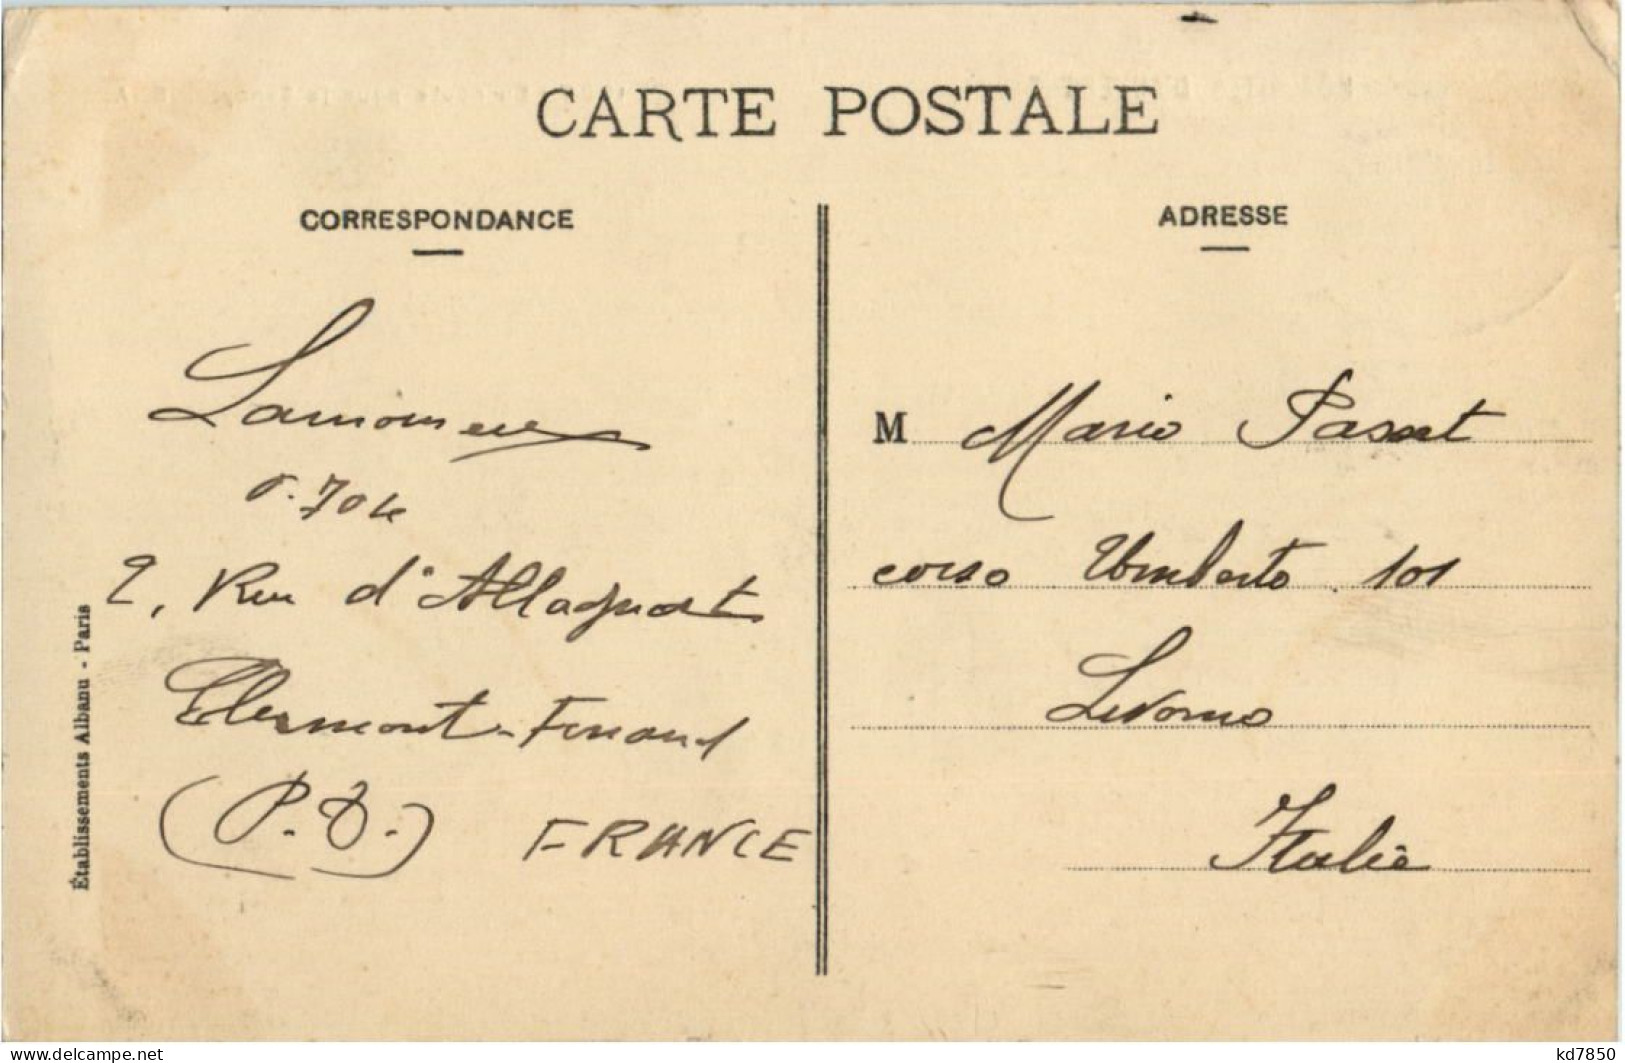 CARTE POSTALE
CORRESPONDANCE
2, Rue d'Allagnat
Clermont-Ferrand
(P.D.) FRANCE
Établissements Albanu - Paris
ADRESSE
M Mario Passet
corso Umberto 101
Livorno
Italie
www.delcampe.net
kd7850